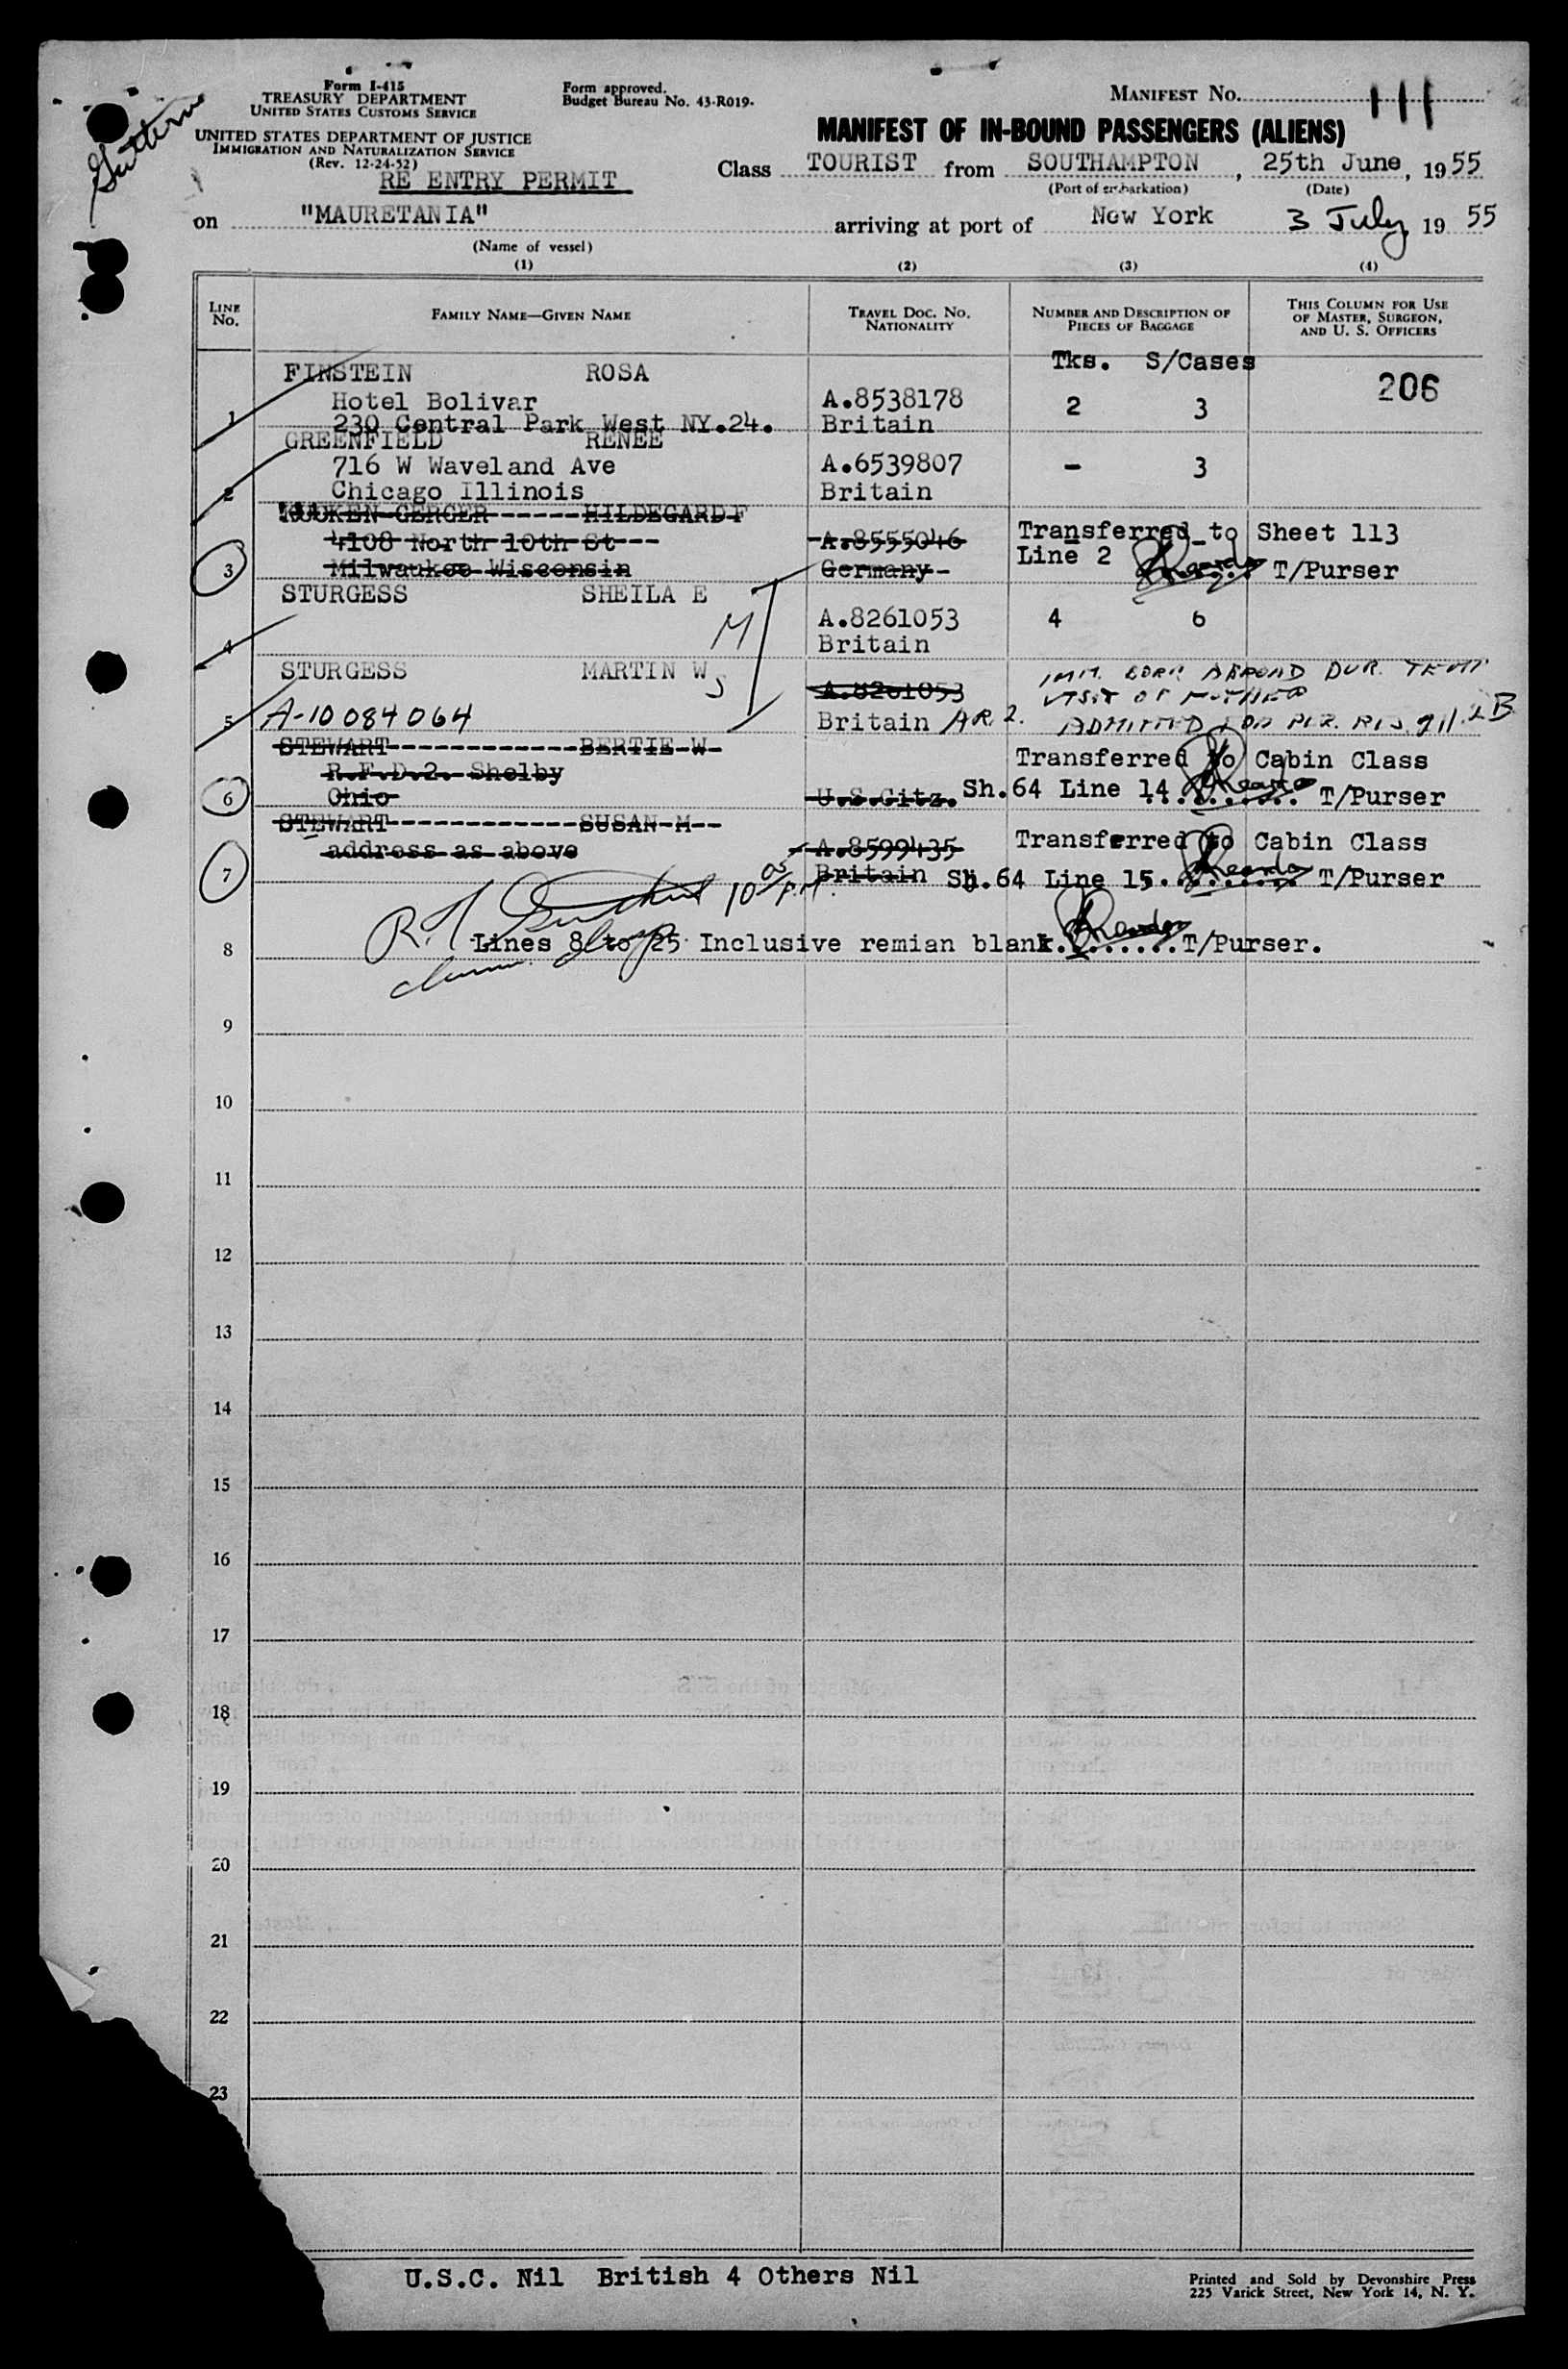 Form I-415
TREASURY DEPARTMENT
UNITED STATES CUSTOMS SERVICE
UNITED STATES DEPARTMENT OF JUSTICE
IMMIGRATION AND NATURALIZATION SERVICE
(Rev. 12-24-52)
RE ENTRY PERMIT
Form approved.
Budget Bureau No. 43-R019.
MANIFEST No. 111
MANIFEST OF IN-BOUND PASSENGERS (ALIENS)
Class TOURIST from SOUTHAMPTON, 25th June, 1955
(Port of embarkation) (Date)
on "MAURETANIA" arriving at port of New York 3 July 19 55
(Name of vessel)
(1) (2) (3) (4)
LINE No. FAMILY NAME—GIVEN NAME TRAVEL DOC. NO. NATIONALITY NUMBER AND DESCRIPTION OF PIECES OF BAGGAGE THIS COLUMN FOR USE OF MASTER, SURGEON, AND U. S. OFFICERS
Tks. S/Cases
FINSTEIN ROSA 206
Hotel Bolivar A.8538178 2 3
1 230 Central Park West NY.24. Britain
GREENFIELD RENEE
716 W Waveland Ave A.6539807 - 3
2 Chicago Illinois Britain
GERGER HILDEGARD F
4108 North 10th St A.8555046 Transferred to Sheet 113
3 Milwaukee Wisconsin Germany Line 2 T/Purser
STURGESS SHEILA E
M A.8261053 4 6
4 Britain
STURGESS MARTIN W S A.8261053 IMM. BORN ABROAD DUR. TEMP
VISIT OF MOTHER
5 A-10 084 064 Britain AR 2. ADMITTED FOR PER. RES. 211.2B
STEWART------------BERTIE-W-
R.F.D.2. Shelby Transferred to Cabin Class
6 Ohio U.S.Citz. Sh.64 Line 14 .......... T/Purser
STEWART------------SUSAN-M--
address as above A.8599435 Transferred to Cabin Class
7 Britain Sh.64 Line 15.......... T/Purser
10 05 P.M.
8 Lines 8 to 25 Inclusive remian blank.........T/Purser.
9
10
11
12
13
14
15
16
17
18
19
20
21
22
23
U.S.C. Nil British 4 Others Nil
Printed and Sold by Devonshire Press
225 Varick Street, New York 14, N. Y.